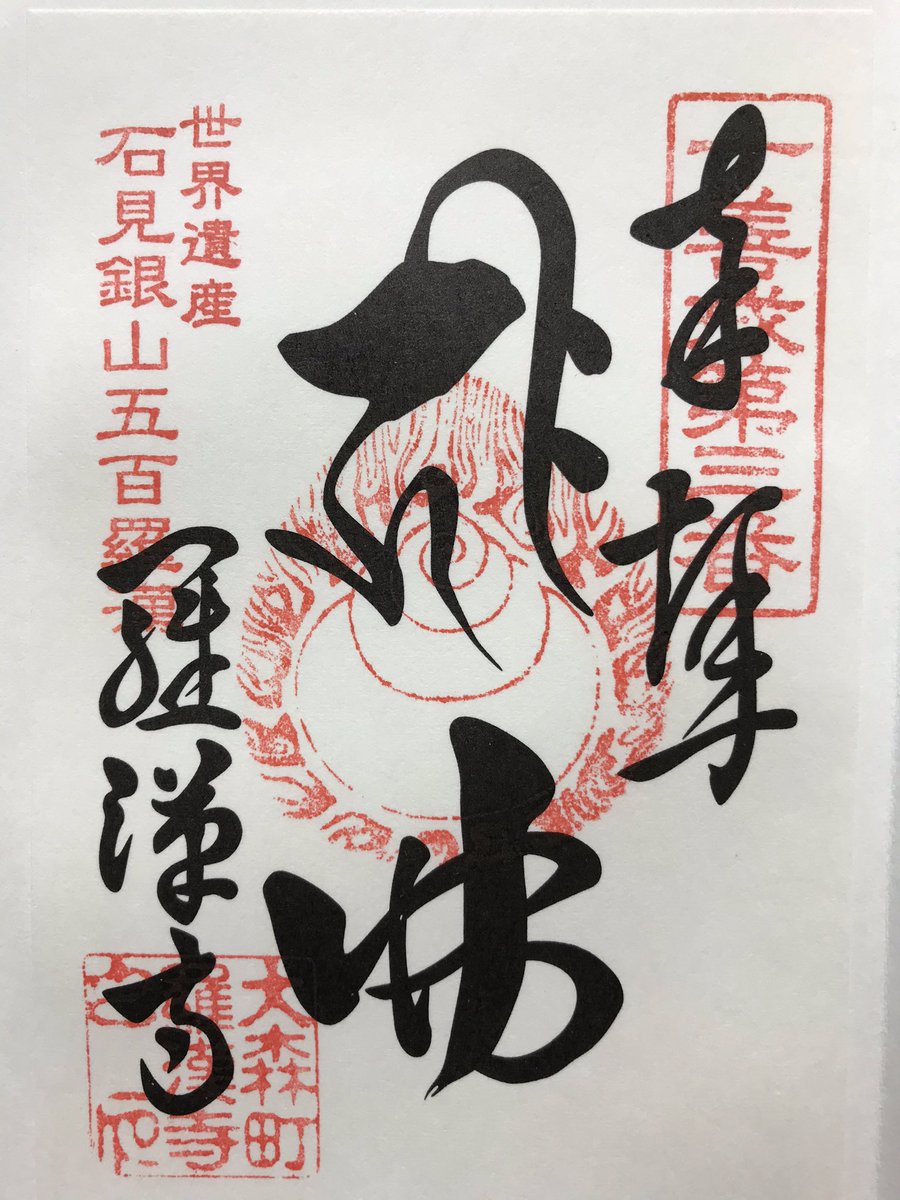 奉拝
十善戒第三番
佛
世界遺産
石見銀山五百羅漢
羅漢寺
大森町
羅漢寺